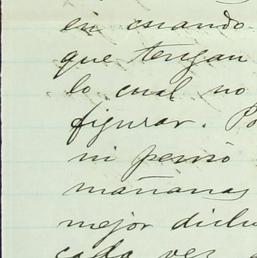 en cuando
que tengan
lo cual no
figurar. Po
ni pensó
mañanas
mejor dich
cada vez